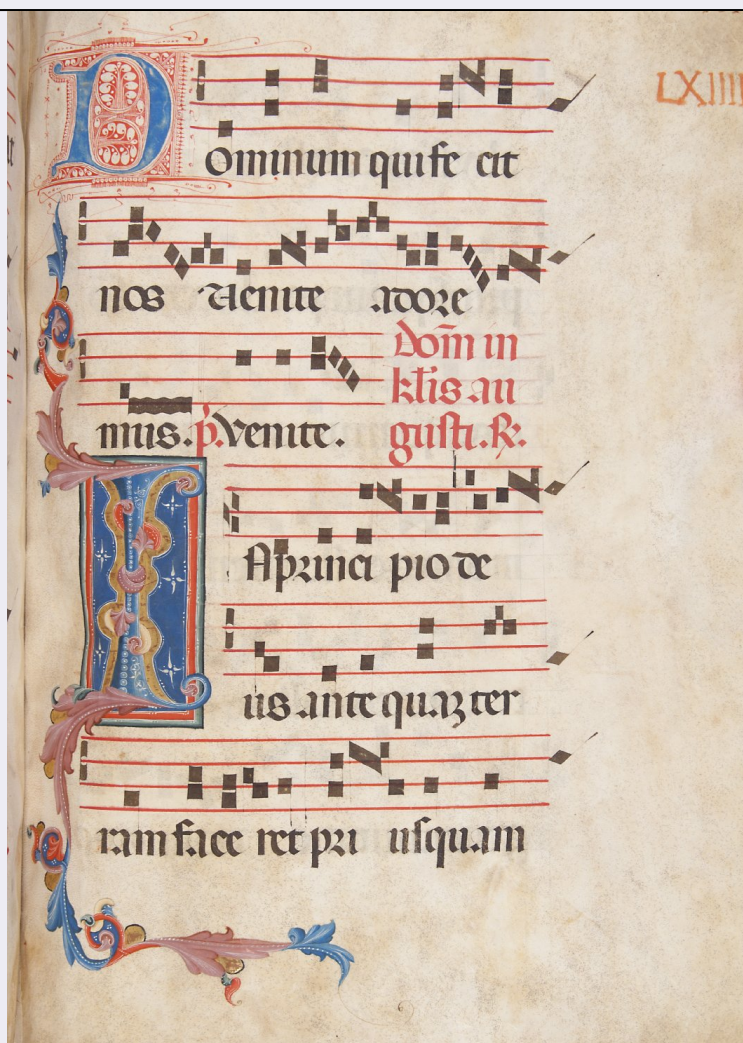 LXIIII
Dominum qui fe cit
nos Uenite adore
mus. p̃. Venite.
Dom̃ in
kl̃is au
gusti. R.
IN principio de
us ante quaȝ ter
ram face ret pri usquam